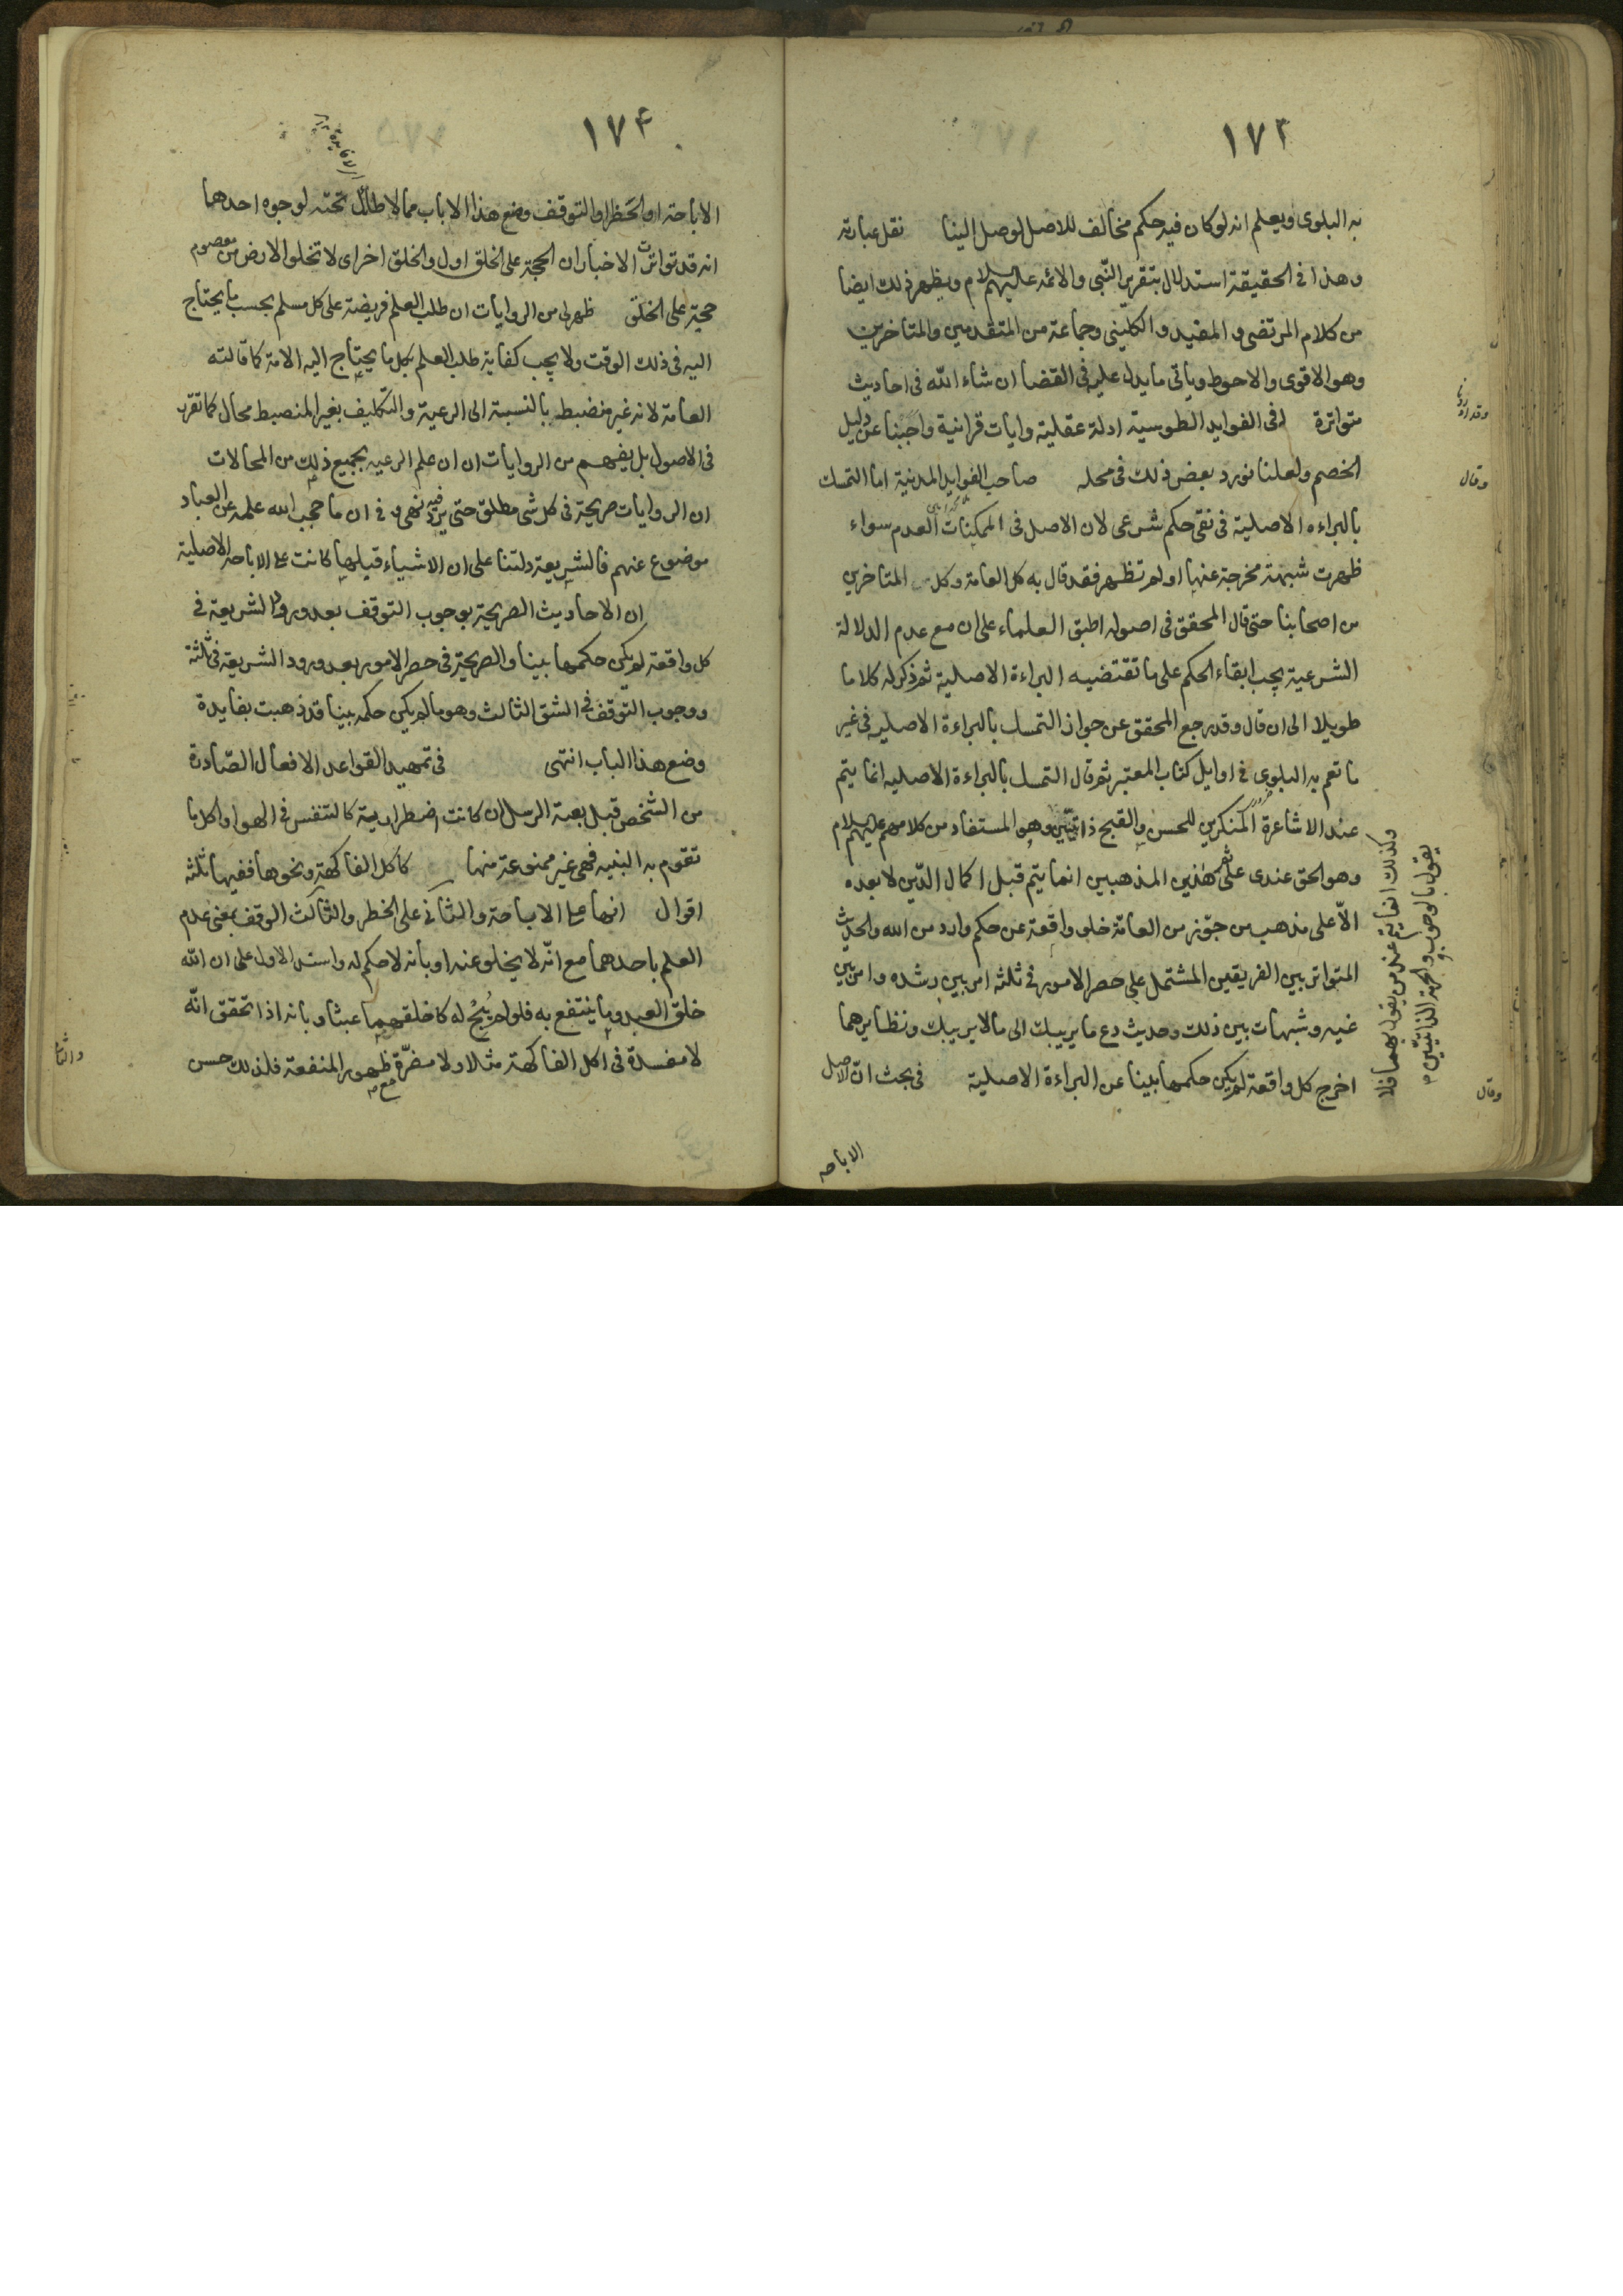 ١٧٣
به البلوى ويعلم انه لو كان فيه حكم مخالف للاصل لوصل الينا نقل عبارته
وهذا فى الحقيقة استدلال بتقرير النّبى والائمه عليهم السلام ويظهر ذلك ايضا
من كلام المرتضى و المفيد و الكلينى وجماعة من المتقدمين والمتاخرين
وهو الاقوى والاحوط وياتى ما يدل عليه فى القضا ان شاء الله فى احاديث
متواترة فى الفوايد الطوسية ادلة عقلية وايات قرانية واجبنا عن دليل
الخصم ولعلنا نورد بعض ذلك فى محله صاحب الفوايد المدنية اما التمسك
بالبراءه الاصلية فى نفى حكم شرعى لان الاصل فى الممكنات العدم سواء
ظهرت شبهة مخرجة عنها او لم تظهر فقد قال به كل العامة وكل المتاخرين
من اصحابنا حتى قال المحقق فى اصوله اطبق العلماء على ان مع عدم الدلالة
الشرعية يجب ابقاء الحكم على ما تقتضيه البراءة الاصلية ثم ذكر له كلاما
طويلا الى ان قال وقد رجع المحقق عن جواز التمسك بالبراءة الاصليه فى غير
ما تعم به البلوى فى اوايل كتاب المعتبر ثم قال التمسك بالبراءة الاصليه انما يتم
عند الاشاعرة المنكرين للحسن و القبح ذاتيّين وهو المستفاد من كلامهم عليهم السلام
وهو الحق عندى ثم على هذين المذهبين انما يتم قبل اكمال الدّين لا بعده
الّا على مذهب من جوّز من العامّة خلو واقعة عن حكم وارد من الله والحديث
المتواتر بين الفريقين المشتمل على حصر الامور فى ثلثه امر بين رشده وامر بين
غيه وشبهات بين ذلك وحديث دع ما يريبك الى ما لا يريبك ونظايرهما
اخرج كل واقعة لم يكن حكمها بينا عن البراءة الاصلية فى بحث انّ الاصل
وكذلك انما يتم عند من يقول بهما فلا
يقول بالوجوب والحرمة الذاتيّين
وقال
وقال
الاباحه
١٧٤
الاباحة او الحَظر او التوقف وضع هذا الاباب مما لا طائل تحته لوجوه احدها
انه قد تواترت الاخبار ان الحجة على الخلق اول والخلق اخراى لا تخلو الارض من معصوم
حجة على الخلق ظهر لى من الروايات ان طلب العلم فريضة على كل مسلم بحسب ما يحتاج
اليه فى ذلك الوقت ولا يجب كفاية طلب العلم بكل ما يحتاج اليه الامة كما قالته
العامة لانه غير منضبط بالنسبة الى الرعية والتكليف بغير المنضبط محال كما تقرر
فى الاصول بل يفهم من الروايات ان علم الرعيه بجميع ذلك من المحالات
ان الروايات صريحة فى كل شى مطلق حتى يرد فيه نهى و فى ان ما حجب الله علمه عن العباد
موضوع عنهم فالشريعة دلتنا على ان الاشياء قبلها كانت على الاباحة الاصلية
ان الاحاديث الصريحة بوجوب التوقف بعد ورود الشريعة فى
كل واقعة لم يكن حكمها بينا والصريحة فى حصر الامور بعد ورود الشريعة فى ثلثة
ووجوب التّوقف فى الشق الثالث وهو ما لم يكن حكمه بينا قد ذهبت بفايدة
وضع هذا الباب انتهى فى تمهيد القواعد الافعال الصّادرة
من الشخص قبل بعثة الرسل ان كانت اضطرارية كالتنفس فى الهوا واكل ما
تقوم به البنيه فهى غير ممنوعة منها كاكل الفاكهة ونحوها ففيها ثلثه
اقوال انها على الاباحة والثانى على الحظر والثالث الوقف بمعنى عدم
العلم باحدهما مع انّه لا يخلو عنه او بانه لا حكم له واستدل الاول على ان الله
خلق العبد وما ينتفع به فلو لم يُبحْ له كا خلقهما عبثا وبانه اذا تحقق انّه
لا مفسدة فى اكل الفاكهة مثلا ولا مضرّة مع ظهور المنفعة فلذلك حسن